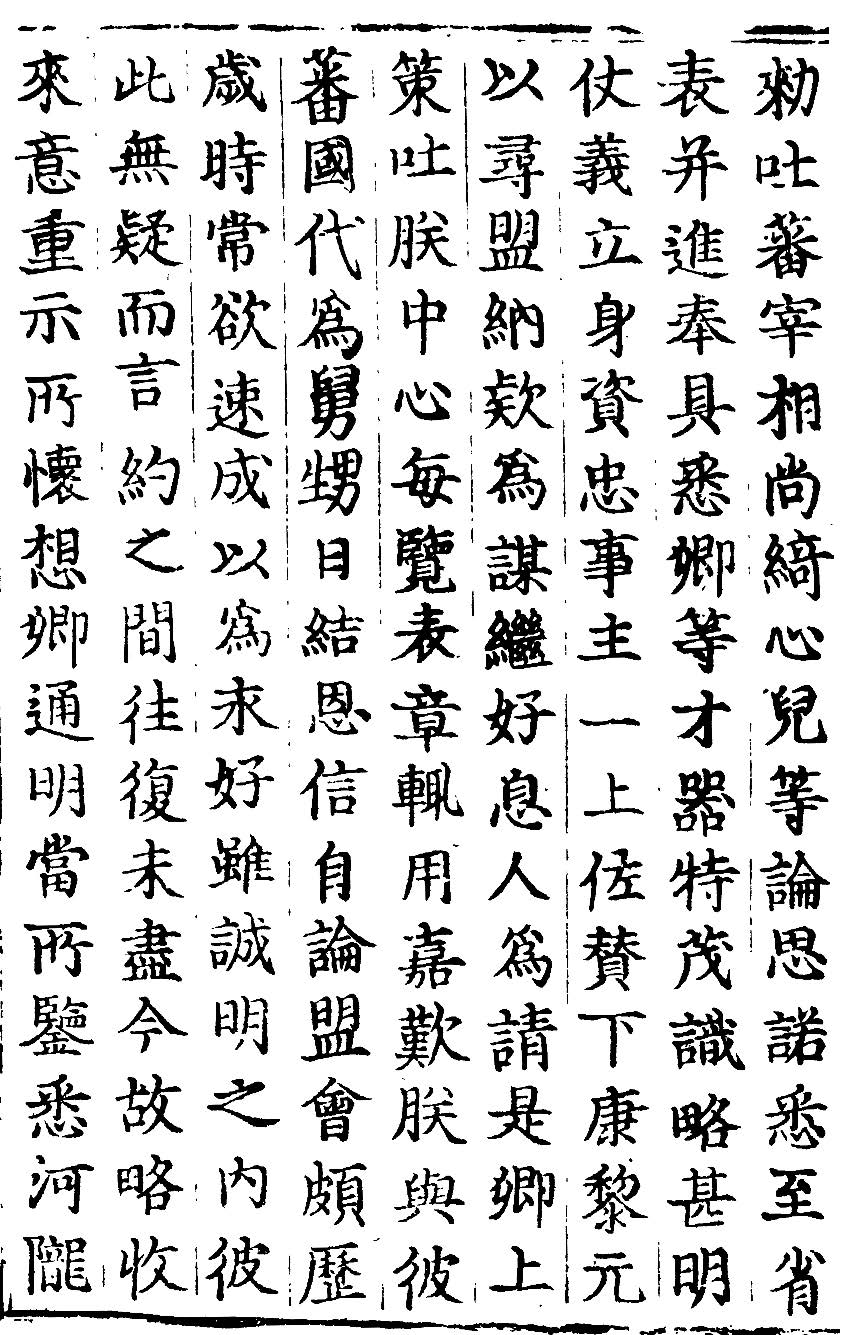 勑吐蕃宰相尚綺心兒等論思諾悉至省
表并進奉具悉卿等才器特茂識略甚明
仗義立身資忠事主一上佐贊下康黎元
以尋盟納欵爲謀繼好息人爲請是卿上
策吐朕中心每覽表章輒用嘉歎朕與彼
蕃國代爲舅甥日結恩信自論盟會頗歷
歲時常欲速成以爲求好雖誠明之內彼
此無疑而言約之間往復未盡今故略收
來意重示所懷想卿通明當所鑒悉河隴